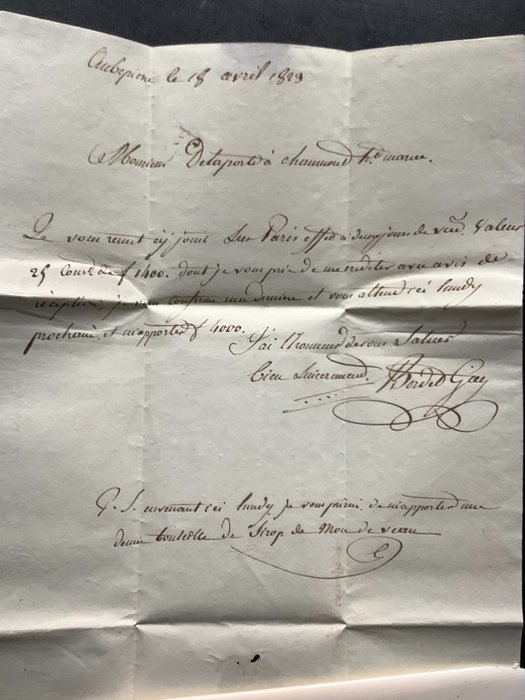 Aubepierre le 18 avril 1823
Monsieur Delaporte à chaumond h.te marne.
Je vous remet cy joint sur Paris effet à deux jours de vue. Valeur
25 Court de f 1400. dont je vous prie de me créditer avec avis de
réception. je vous confirme ma dernière et vous attend ici lundy
prochain, et m'apporter f 4000.
J'ai l'honneur de vous Saluer
bien Sincerement. Bordet Gay
P. S. en venant ici lundy je vous prierai de m'apporter une
demie bouteille de Sirop de Mou de veau